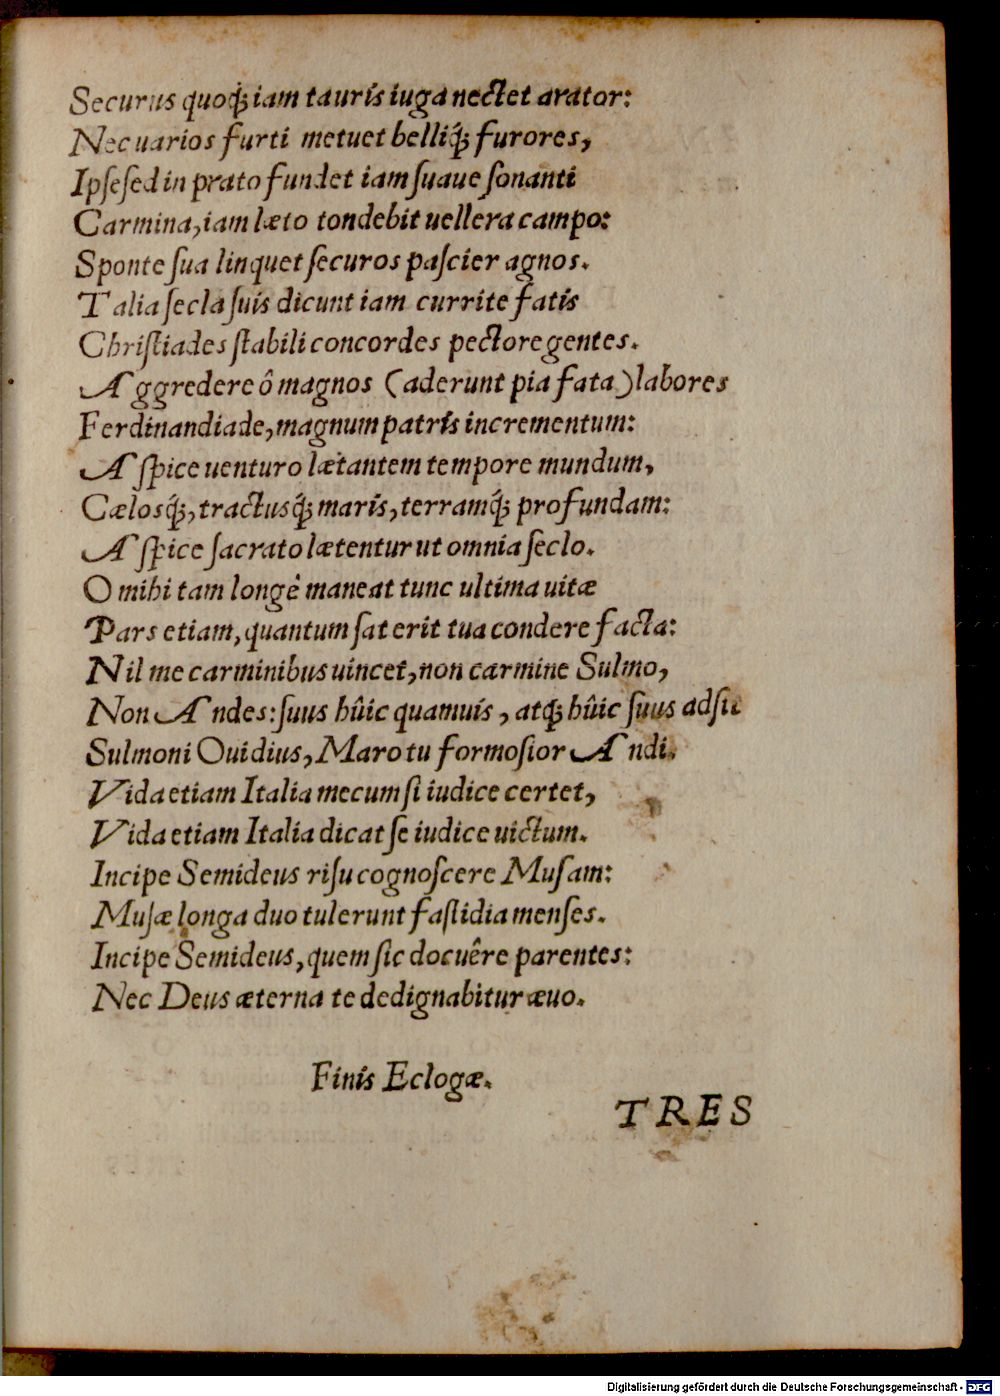 Securus quoq́; iam tauris iuga nectet arator:
Nec uarios furti metuet belliq́; furores,
Ipse sed in prato fundet iam suaue sonanti
Carmina, iam læto tondebit uellera campo:
Sponte sua linquet securos pascier agnos.
Talia secla suis dicunt iam currite fatis
Christiades stabili concordes pectore gentes.
Aggredere ô magnos (aderunt pia fata) labores
Ferdinandiade, magnum patris incrementum:
Aspice uenturo lætantem tempore mundum,
Cælosq́;, tractusq́; maris, terramq́; profundam:
Aspice sacrato lætentur ut omnia seclo.
O mihi tam longè maneat tunc ultima uitæ
Pars etiam, quantum sat erit tua condere facta:
Nil me carminibus uincet, non carmine Sulmo,
Non Andes: suus hûic quamuis, atq; hûic suus adsit
Sulmoni Ouidius, Maro tu formosior Andi.
Vida etiam Italia mecum si iudice certet,
Vida etiam Italia dicat se iudice uictum.
Incipe Semideus risu cognoscere Musam:
Musæ longa duo tulerunt fastidia menses.
Incipe Semideus, quem sic docuêre parentes:
Nec Deus æterna te dedignabitur æuo.
Finis Eclogæ.
TRES
Digitalisierung gefördert durch die Deutsche Forschungsgemeinschaft - DFG